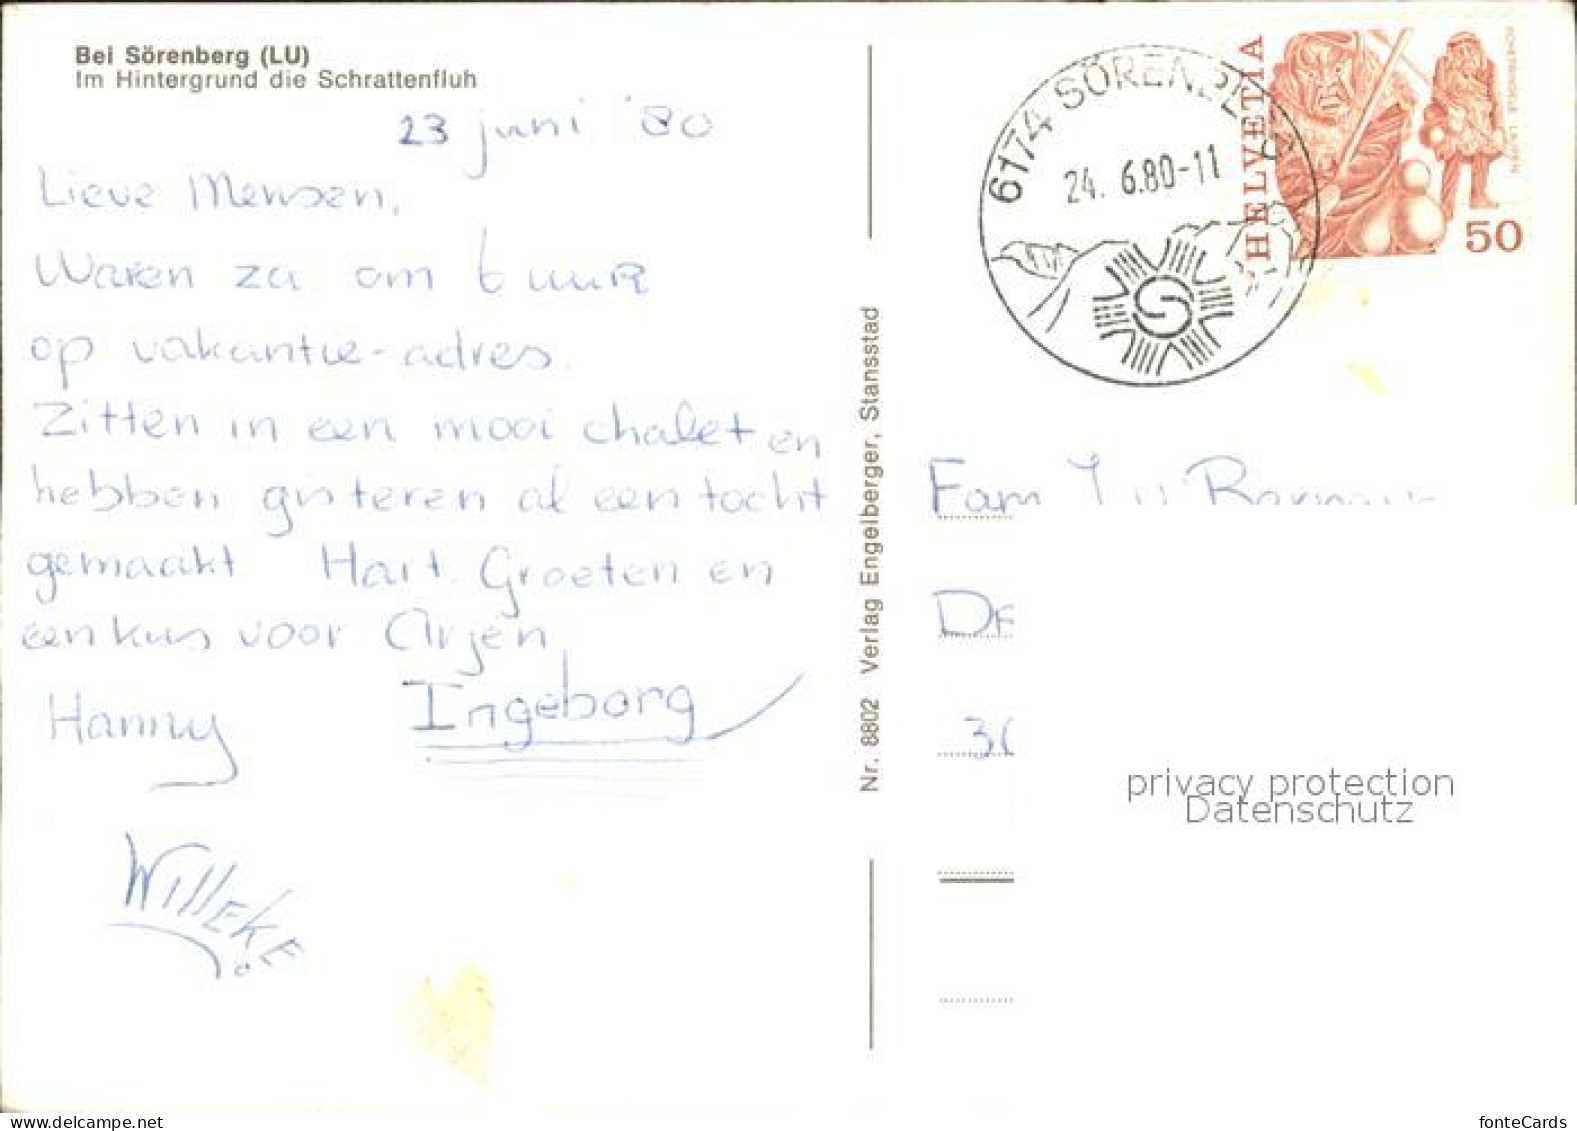 Bei Sörenberg (LU)
Im Hintergrund die Schrattenfluh
23 juni '80
Lieve Mensen,
Waren za om 6 uur
op vakantie-adres.
Zitten in een mooi chalet en
hebben gisteren al een tocht
gemaakt Hart. Groeten en
een kus voor Arjen
Hanny Ingeborg
Willeke
Nr. 8802 Verlag Engelberger, Stansstad
6174 SÖRENBERG
24. 6.80-11
HELVETIA
50
Fam
De
30
privacy protection
Datenschutz
fonteCards